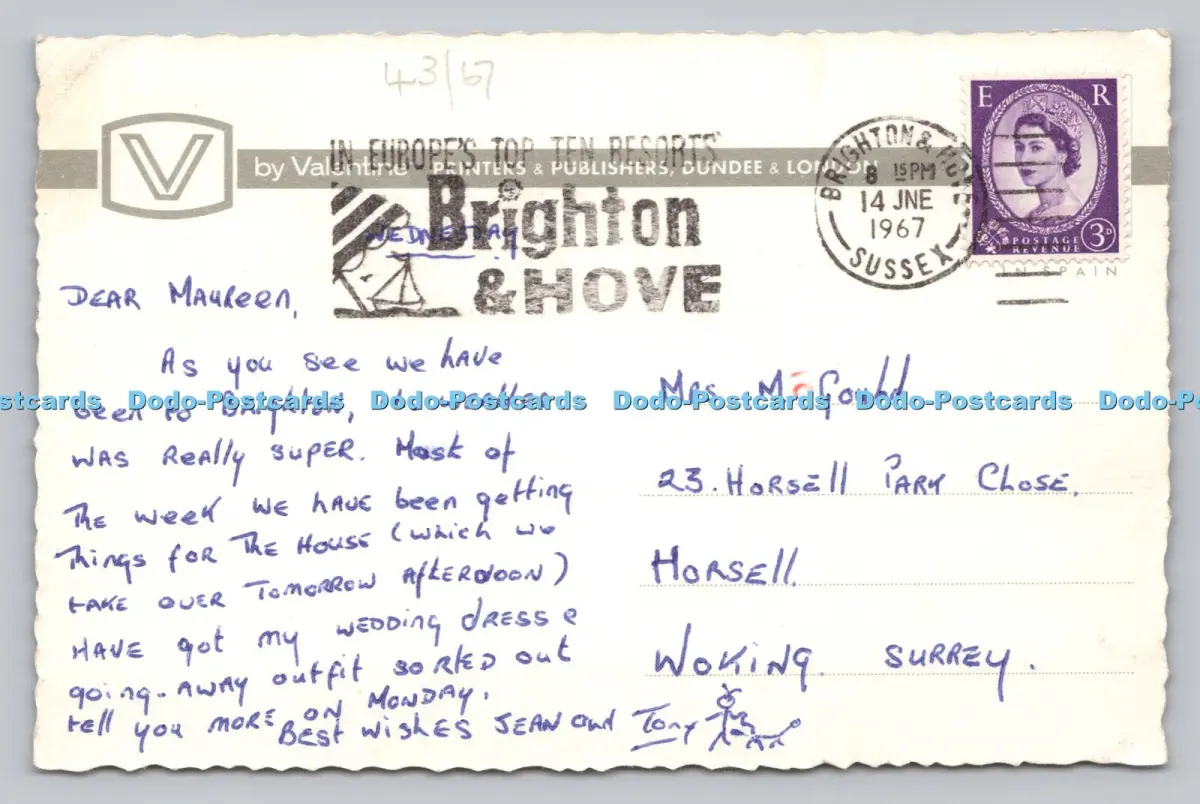 43/67
IN EUROPE'S TOP TEN RESORTS
by Valentine PRINTERS & PUBLISHERS, DUNDEE & LONDON
Brighton
& HOVE
BRIGHTON & HOVE
8 15PM
14 JNE
1967
SUSSEX
E R
POSTAGE
REVENUE
3D
IN SPAIN
WEDNESDAY
DEAR MAUREEN,
As you see we have
been to Brighton, the weather
was really super. Most of
the week we have been getting
things for the house (which we
take over tomorrow afternoon)
have got my wedding dress &
going-away outfit sorted out
tell you more on Monday.
Best wishes Jean and Tony
Mrs M Gould
23. Horsell Park Close.
Horsell
Woking. Surrey.
Dodo-Postcards Dodo-Postcards Dodo-Postcards Dodo-Postcards